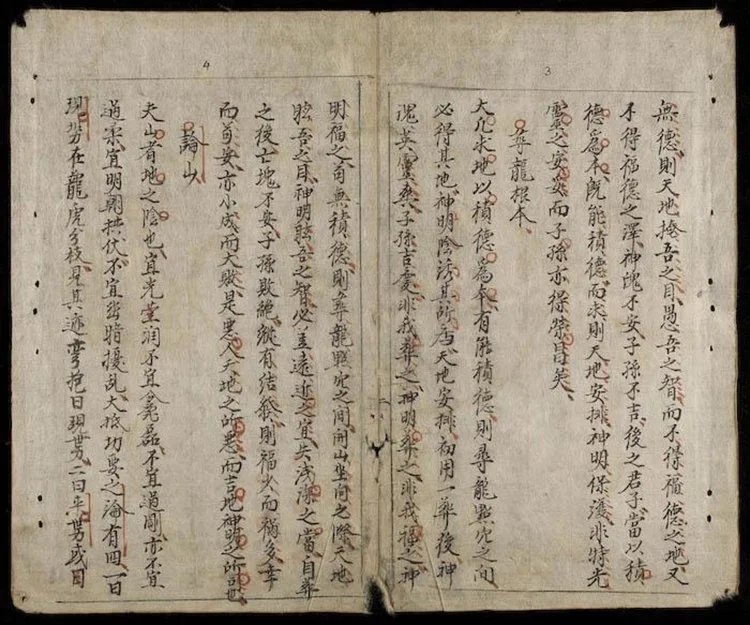 3
無德則天地掩吾之目愚吾之智而不得福德之地又
不得福德之澤神魄不安子孫不吉後之君子當以積
德爲本既能積德而求則天地安排神明保護非特先
靈之安妥而子孫亦得榮昌矣
尋龍根本
大凡求地以積德爲本有能積德則尋龍點穴之間
必得其地神明陰誘其所居天地安排初用一葬後神
魂英靈矣子孫吉慶非我葬之神明葬之非我福之神
4
明福之苟無積德則尋龍點穴之間開山坐向之際天地
眩吾之目神明吾之智必主遠近之宜失淺深之當自葬
之後亡塊不安子孫敗絶縱有結發則福少而禍多幸
而苟安亦小成而大敗是惡人天地之所惡而吉地神明之所司也
論山
夫山者地之陰也宜光堂潤不宜麄磊不宜過剛亦不宜
過柔宜明朗拱伏不宜暗擾乱大抵功要之論有四一曰
現势在龍虎分枝見其迹弯抱曰現势二曰势或曰